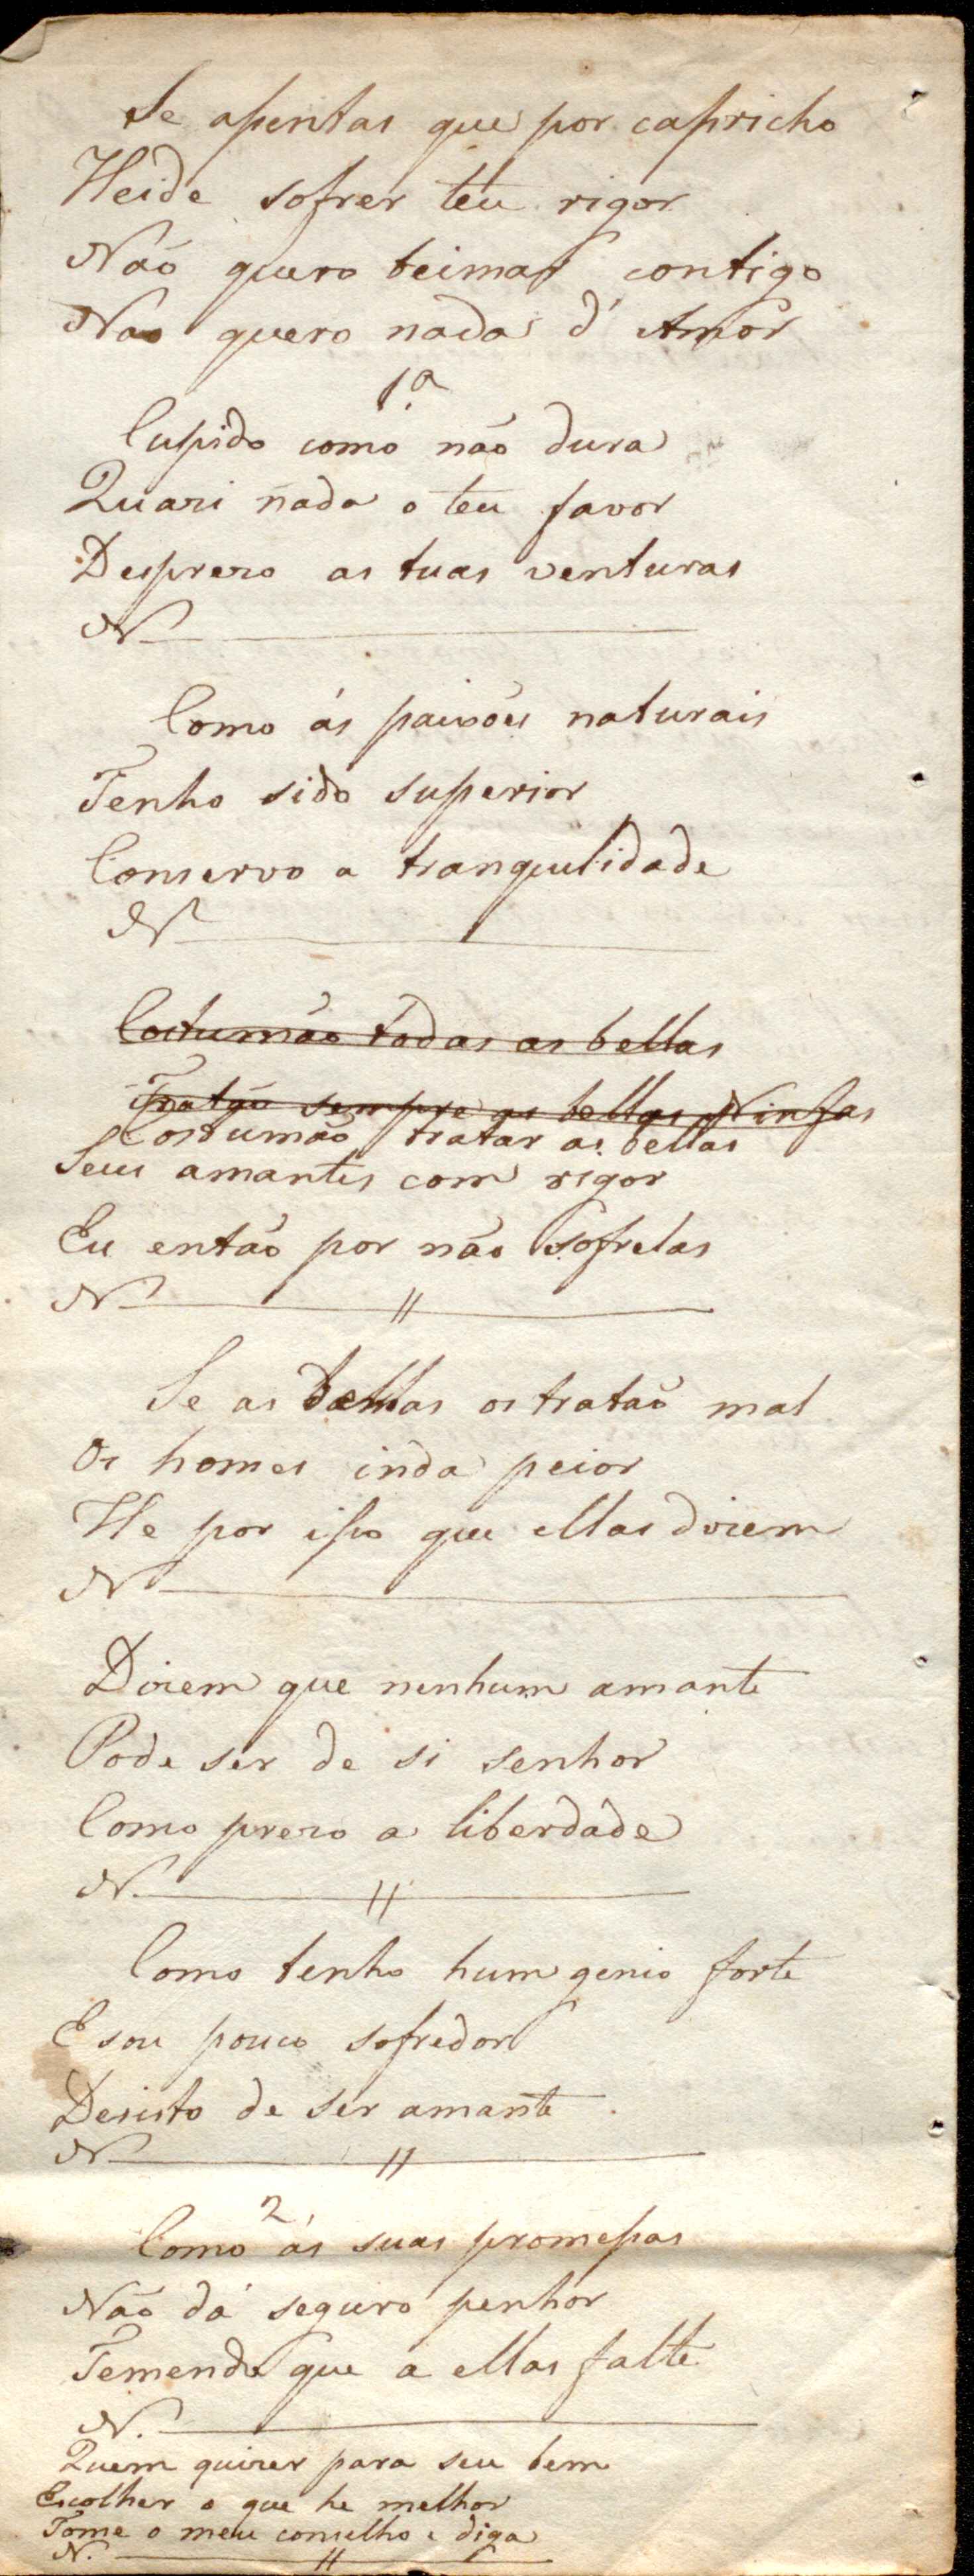 Se assentas que por capricho
Heide sofrer teu rigor
Não quero teimas contigo
Não quero nada d'Amor
1.ª
Cupido como não dura
Quazi nada o teu favor
Desprezo as tuas venturas
N
Como ás paixões naturais
Tenho sido superior
Conservo a tranquilidade
N
Costumão todas as bellas
Tratão sempre as bellas Ninfas
Costumão tratar as bellas
Seus amantes com rigor
Eu então por não sofrelas
N //
Se as bellas os tratão mal
Os homes inda peior
He por isso que ellas dizem
N
Dizem que nenhum amante
Pode ser de si senhor
Como prezo a liberdade
N. //
Como tenho hum genio forte
E sou pouco sofredor
Dezisto de ser amante
N //
2
Como ás suas promessas
Não dá seguro penhor
Temendo que a ellas falte
N.
Quem quizer para seu bem
Escolher o que he melhor
Tome o meu conselho e diga
N. //